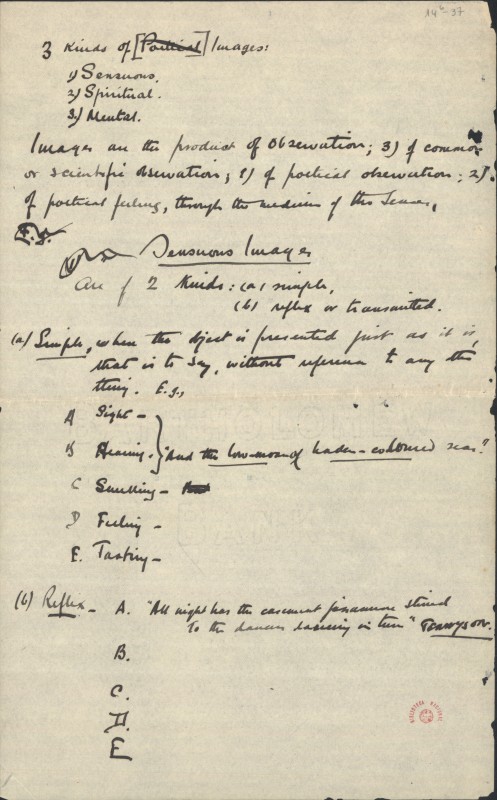 14⁶-37
3 Kinds of [Poetical] Images:
1) Sensuous.
2) Spiritual.
3) Mental.
Images are the product of observation; 3) of common
or scientific observation; 1) of poetical observation; 2)
of poetical feeling, through the medium of the senses.
E.g.
(1) Sensuous Images
are of 2 Kinds: (a) simple,
(b) reflex or transmitted.
(a) Simple, when the object is presented just as it is,
that is to say, without reference to any other
thing. E.g.,
A Sight -
B Hearing. } "And the low-moan of leaden-coloured seas."
C Smelling -
D Feeling -
E. Tasting -
(b) Reflex - A. "All night has the casement jessamine stirred
To the dancers dancing in tune" Tennyson.
B.
C.
D.
E